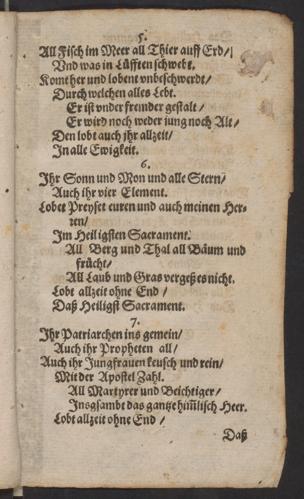 5.
All Fisch im Meer all Thier auff Erd/
Vnd was in Lüfften schwebt.
Komt her und lobent vnbeschwerdt/
Durch welchen alles Lebt.
Er ist vnder frembder gestalt /
Er wird noch weder jung noch Alt /
Den lobt auch jhr allzeit/
In alle Ewigkeit.
6.
Ihr Sonn und Mon und alle Stern/
Auch ihr vier Element.
Lobet Preyset euren und auch meinen Her-
ren/
Im Heiligsten Sacrament.
All Berg und Thal all Bäum und
frücht/
All Laub und Gras vergeß es nicht.
Lobt allzeit ohne End /
Daß Heiligst Sacrament.
7.
Ihr Patriarchen ins gemein/
Auch ihr Propheten all/
Auch ihr Jungfrauen keusch und rein/
Mit der Apostel Zahl.
All Martyrer und Beichtiger/
Insgsambt das gantze him̃lisch Heer.
Lobt allzeit ohne End /
Daß